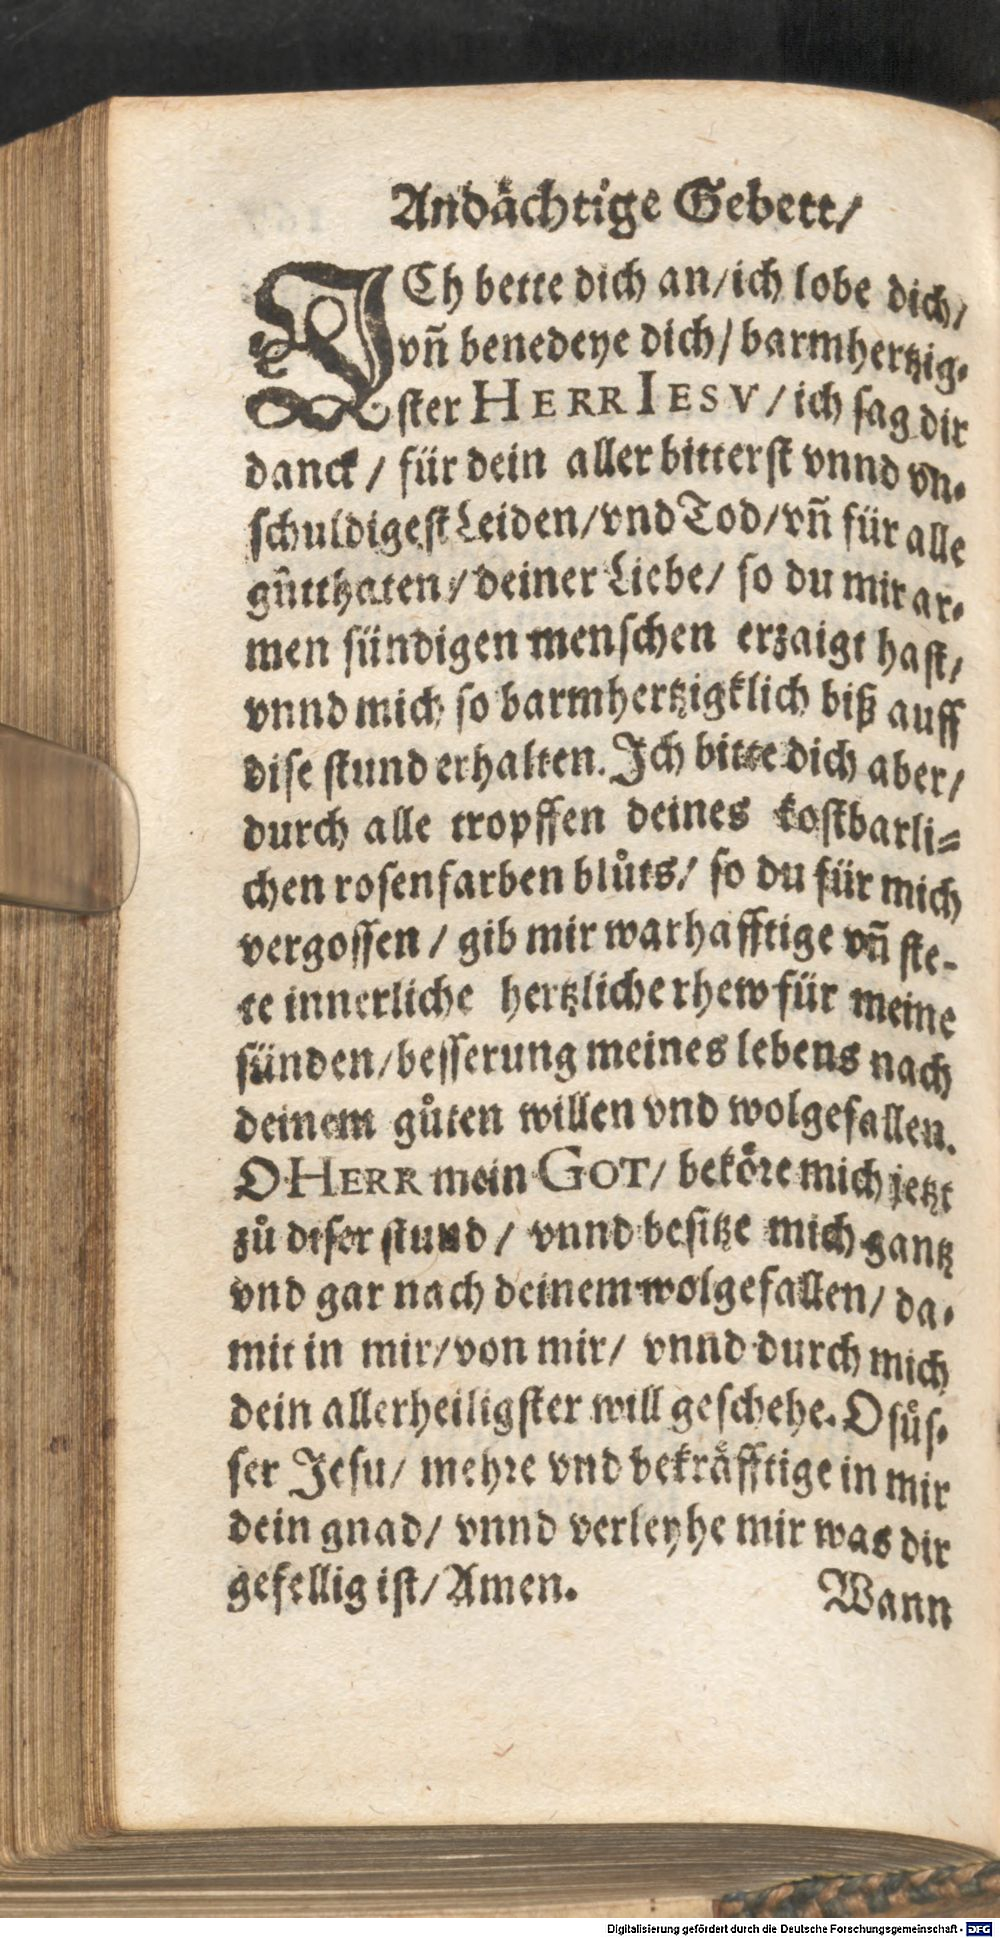 Andächtige Gebett/
ICh bette dich an/ich lobe dich/
vñ benedeye dich/ barmhertzig-
ster HERR IESV/ ich sag dir
danck / für dein aller bitterst vnnd vn-
schuldigest Leiden/vnd Tod/vñ für alle
gůtthaten/ deiner Liebe/ so du mir ar-
men sündigen menschen erzaigt hast/
vnnd mich so barmhertzigklich biß auff
dise stund erhalten. Ich bitte dich aber/
durch alle tropffen deines kostbarli-
chen rosenfarben blůts/ so du für mich
vergossen / gib mir warhafftige vñ ste-
te innerliche hertzliche rhew für meine
sünden/besserung meines lebens nach
deinem gůten willen vnd wolgefallen.
O HERR mein GOT/ beköre mich jetzt
zů diser stund / vnnd besitze mich gantz
vnd gar nach deinem wolgefallen/ da-
mit in mir/von mir/ vnnd durch mich
dein allerheiligster will geschehe. O süs-
ser Jesu/ mehre vnd bekräfftige in mir
dein gnad/ vnnd verleyhe mir was dir
gefellig ist/ Amen.
Wann
Digitalisierung gefördert durch die Deutsche Forschungsgemeinschaft - DFG